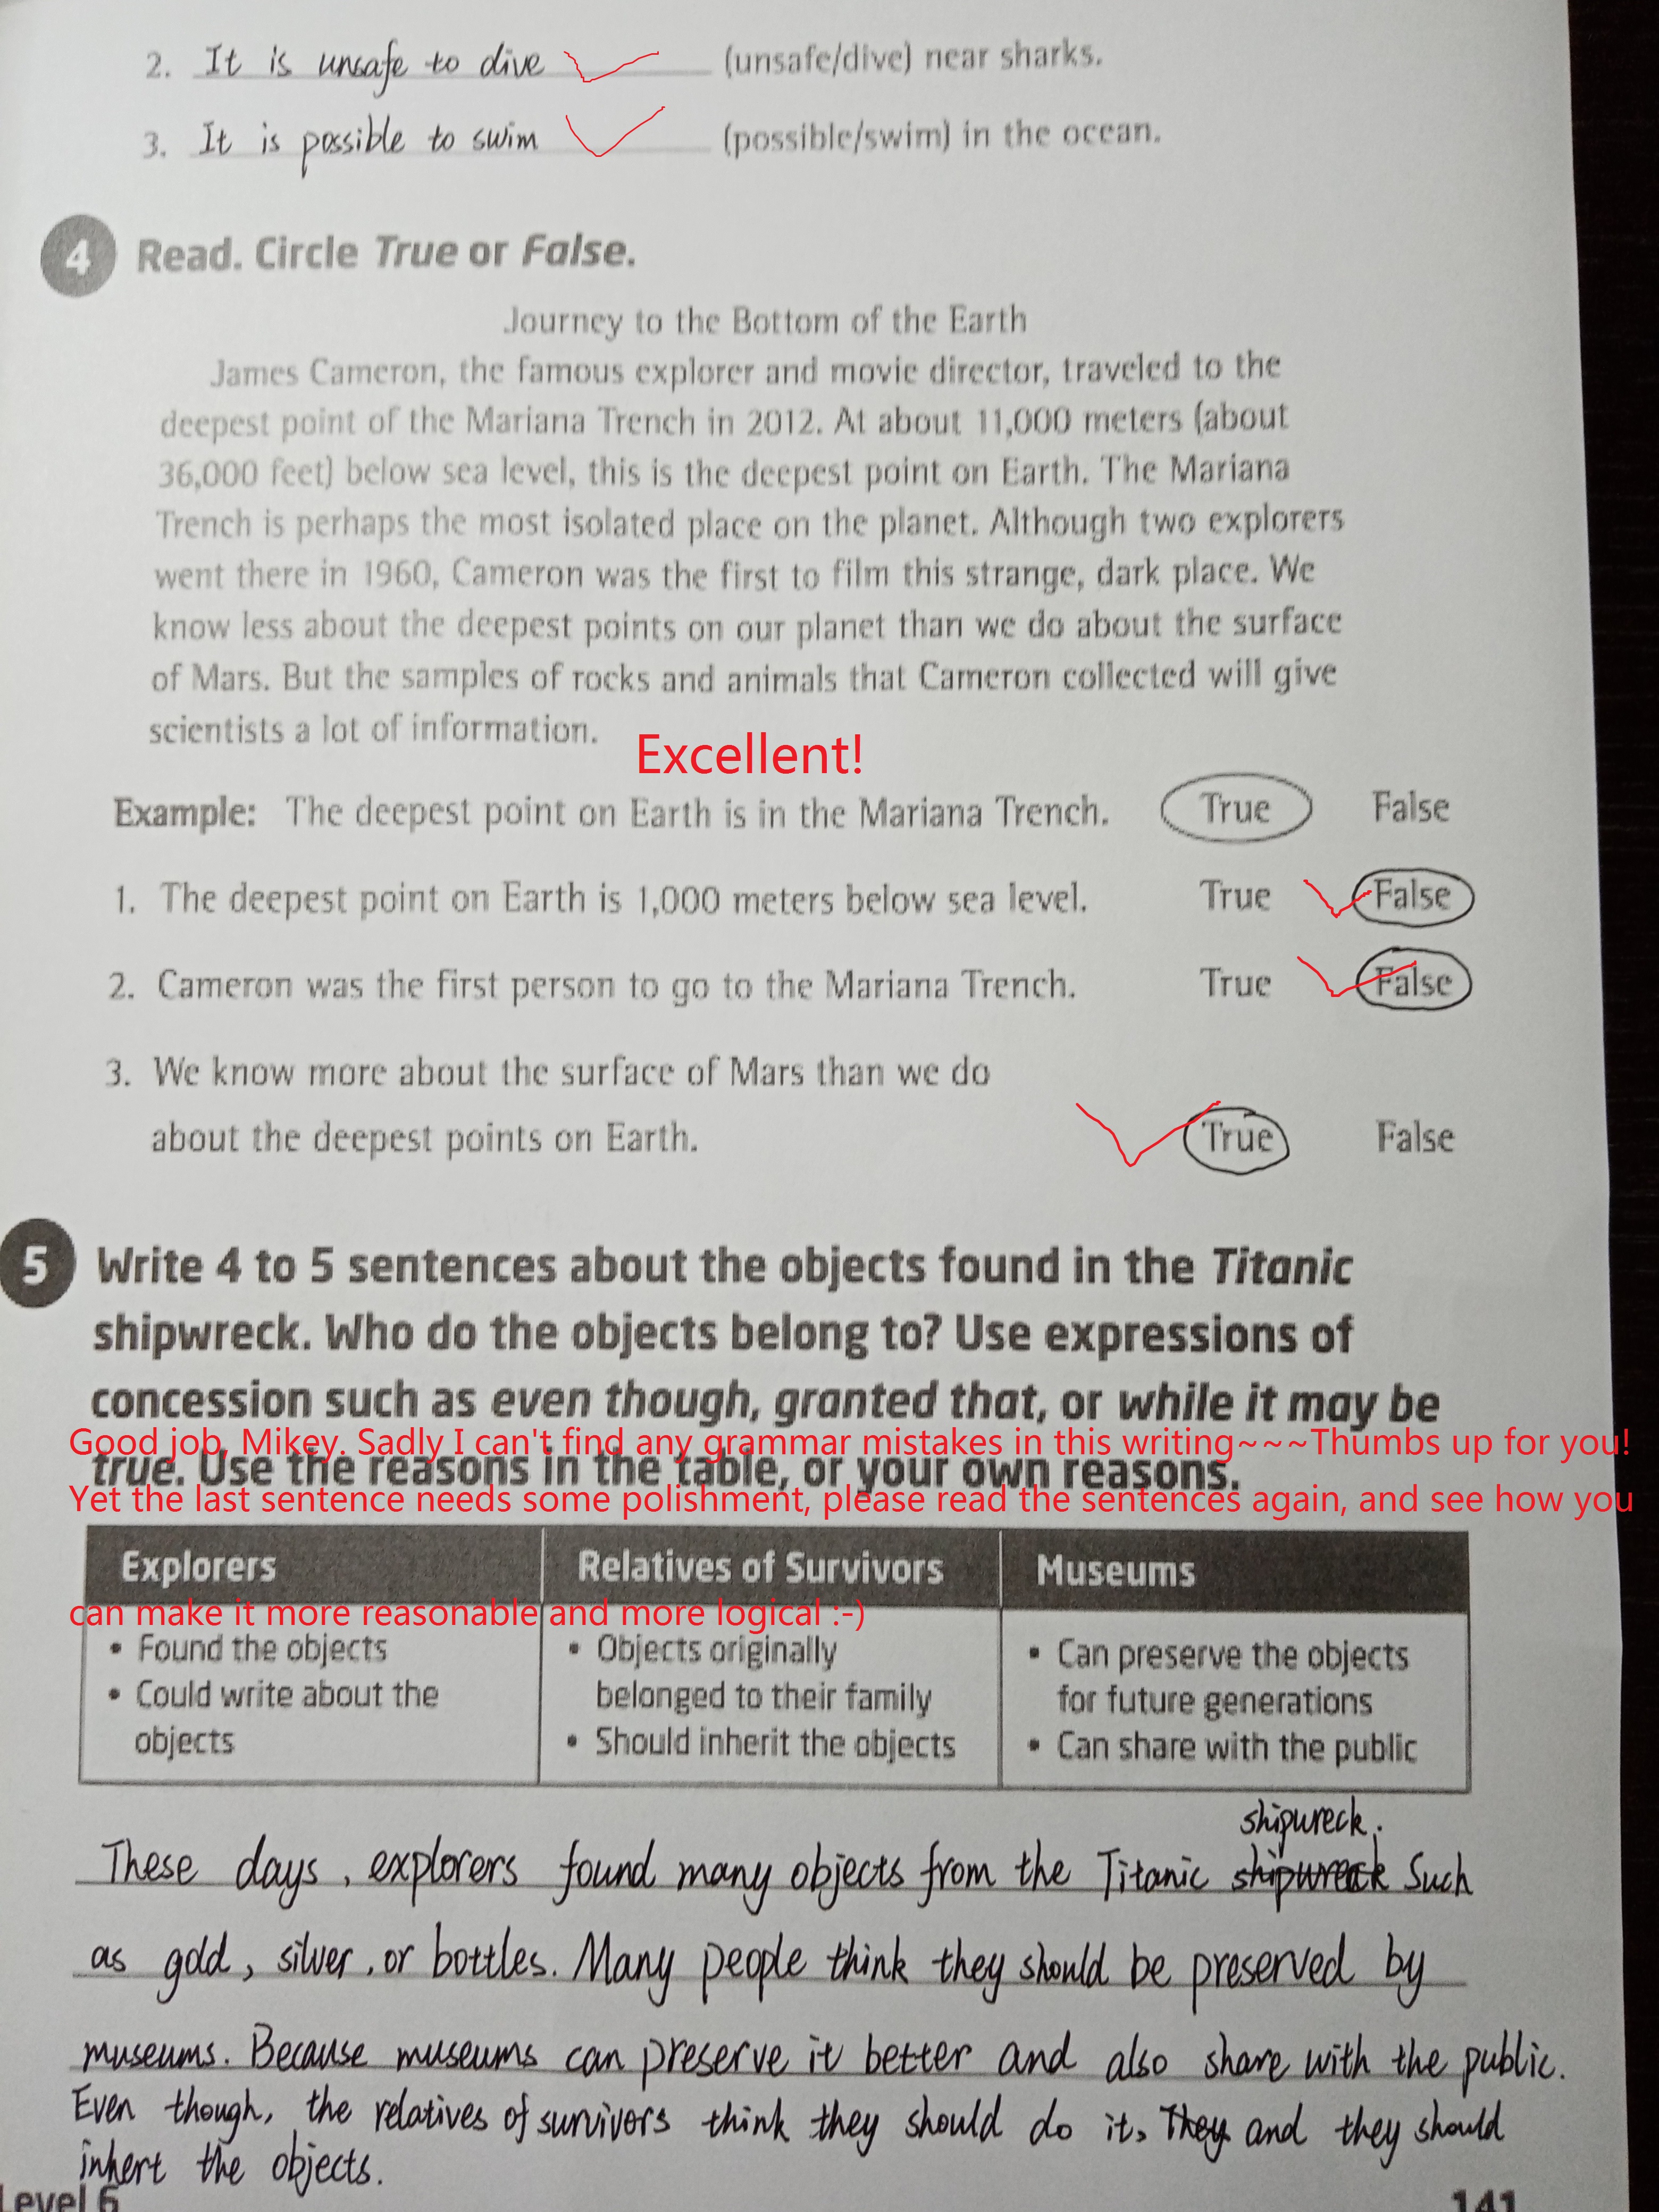 2. It is unsafe to dive (unsafe/dive) near sharks.
3. It is possible to swim (possible/swim) in the ocean.
4 Read. Circle True or False.
Journey to the Bottom of the Earth
James Cameron, the famous explorer and movie director, traveled to the
deepest point of the Mariana Trench in 2012. At about 11,000 meters (about
36,000 feet) below sea level, this is the deepest point on Earth. The Mariana
Trench is perhaps the most isolated place on the planet. Although two explorers
went there in 1960, Cameron was the first to film this strange, dark place. We
know less about the deepest points on our planet than we do about the surface
of Mars. But the samples of rocks and animals that Cameron collected will give
scientists a lot of information.
Excellent!
Example: The deepest point on Earth is in the Mariana Trench. True False
1. The deepest point on Earth is 1,000 meters below sea level. True False
2. Cameron was the first person to go to the Mariana Trench. True False
3. We know more about the surface of Mars than we do
about the deepest points on Earth. True False
5 Write 4 to 5 sentences about the objects found in the Titanic
shipwreck. Who do the objects belong to? Use expressions of
concession such as even though, granted that, or while it may be
Good job, Mikey. Sadly I can't find any grammar mistakes in this writing~~~Thumbs up for you!
true. Use the reasons in the table, or your own reasons.
Yet the last sentence needs some polishment, please read the sentences again, and see how you
Explorers Relatives of Survivors Museums
can make it more reasonable and more logical :-)
• Found the objects • Objects originally • Can preserve the objects
• Could write about the belonged to their family for future generations
objects • Should inherit the objects • Can share with the public
shipwreck.
These days, explorers found many objects from the Titanic shipwreck Such
as gold, silver, or bottles. Many people think they should be preserved by
museums. Because museums can preserve it better and also share with the public.
Even though, the relatives of survivors think they should do it, They and they should
inhert the objects.
Level 6 141